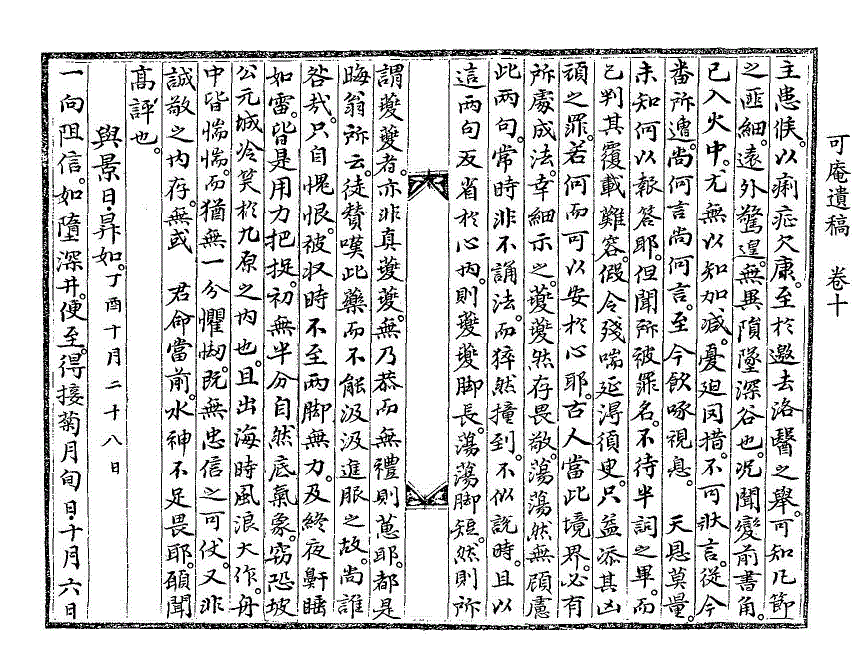 可庵遺稿　卷十
主患候。以痢症欠康。至於邀去洛醫之擧。可知凡節
之匪細。遠外驚遑。無異隕墜深谷也。况聞變前書角。
已入火中。尤無以知加减。憂廹罔措。不可狀言。從今
番所遭。尙何言尙何言。至今飮啄視息。　天恩莫量。
未知何以報答耶。但聞所被罪名。不待半詞之畢。而
已判其覆載難容。假令殘喘延淂須臾。只益添其凶
頑之罪。若何而可以安於心耶。古人當此境界。必有
所處成法。幸細示之。夔夔然存畏敬。蕩蕩然無顧慮
此兩句。常時非不誦法。而猝然撞到。不似說時。且以
這兩句反省於心內。則夔夔脚長。蕩蕩脚短。然則所
謂夔夔者。亦非眞夔夔。無乃恭而無禮則葸耶。都是
晦翁所云。徒賛嘆此藥而不能汲汲進服之故。尙誰
咎㢤。只自愧恨。被収時不至兩脚無力。及終夜鼾睡
如雷。皆是用力把捉。初無半分自然底氣象。窃恐坡
公元城冷笑於九原之內也。且出海時風浪大作。舟
中皆惴惴。而猶無一分懼㤼。旣無忠信之可仗。又非
誠敬之內存。無或　君命當前。水神不足畏耶。願聞
高評也。
與景日,昇如。丁酉十月二十八日
一向阻信。如墮深井。便至。得接菊月旬日,十月六日